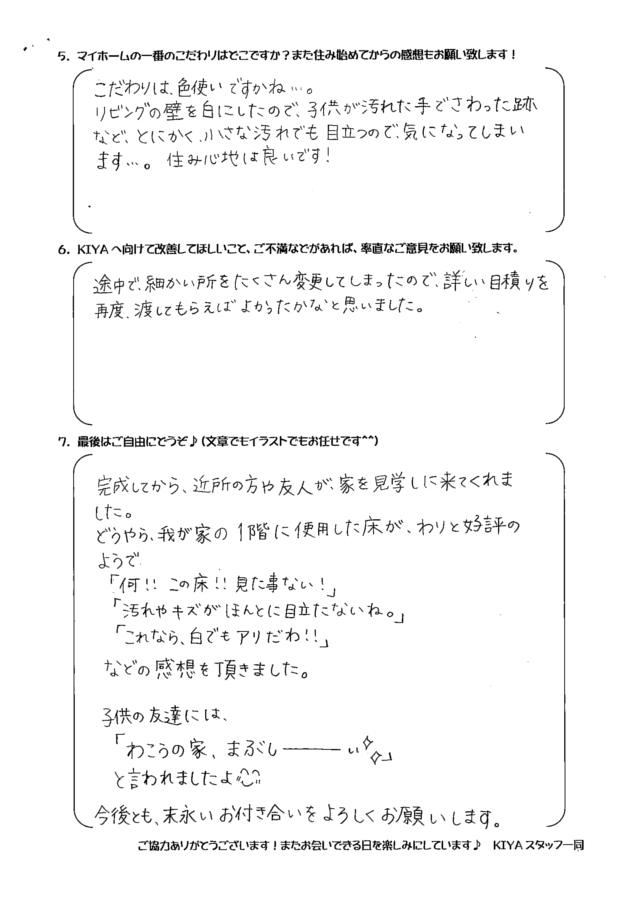 5. マイホームの一番のこだわりはどこですか？また住み始めてからの感想もお願い致します！
こだわりは、色使いですかね…。
リビングの壁を白にしたので、子供が汚れた手でさわった跡
など、とにかく、小さな汚れでも目立つので、気になってしまい
ます…。 住み心地は良いです！
6. KIYAへ向けて改善してほしいこと、ご不満などがあれば、率直なご意見をお願い致します。
途中で、細かい所をたくさん変更してしまったので、詳しい目積りを
再度、渡してもらえばよかったかなと思いました。
7. 最後はご自由にどうぞ♪(文章でもイラストでもお任せです^^)
完成してから、近所の方や友人が、家を見学しに来てくれま
した。
どうやら、我が家の1階に使用した床が、わりと好評の
ようで
「何!! この床!! 見た事ない！」
「汚れやキズがほんとに目立たないね。」
「これなら、白でもアリだわ!!」
などの感想を頂きました。
子供の友達には、
「わこうの家、まぶし――――い」
と言われましたよ
今後とも、末永いお付き合いをよろしくお願いします。
ご協力ありがとうございます！またお会いできる日を楽しみにしています♪ KIYAスタッフ一同